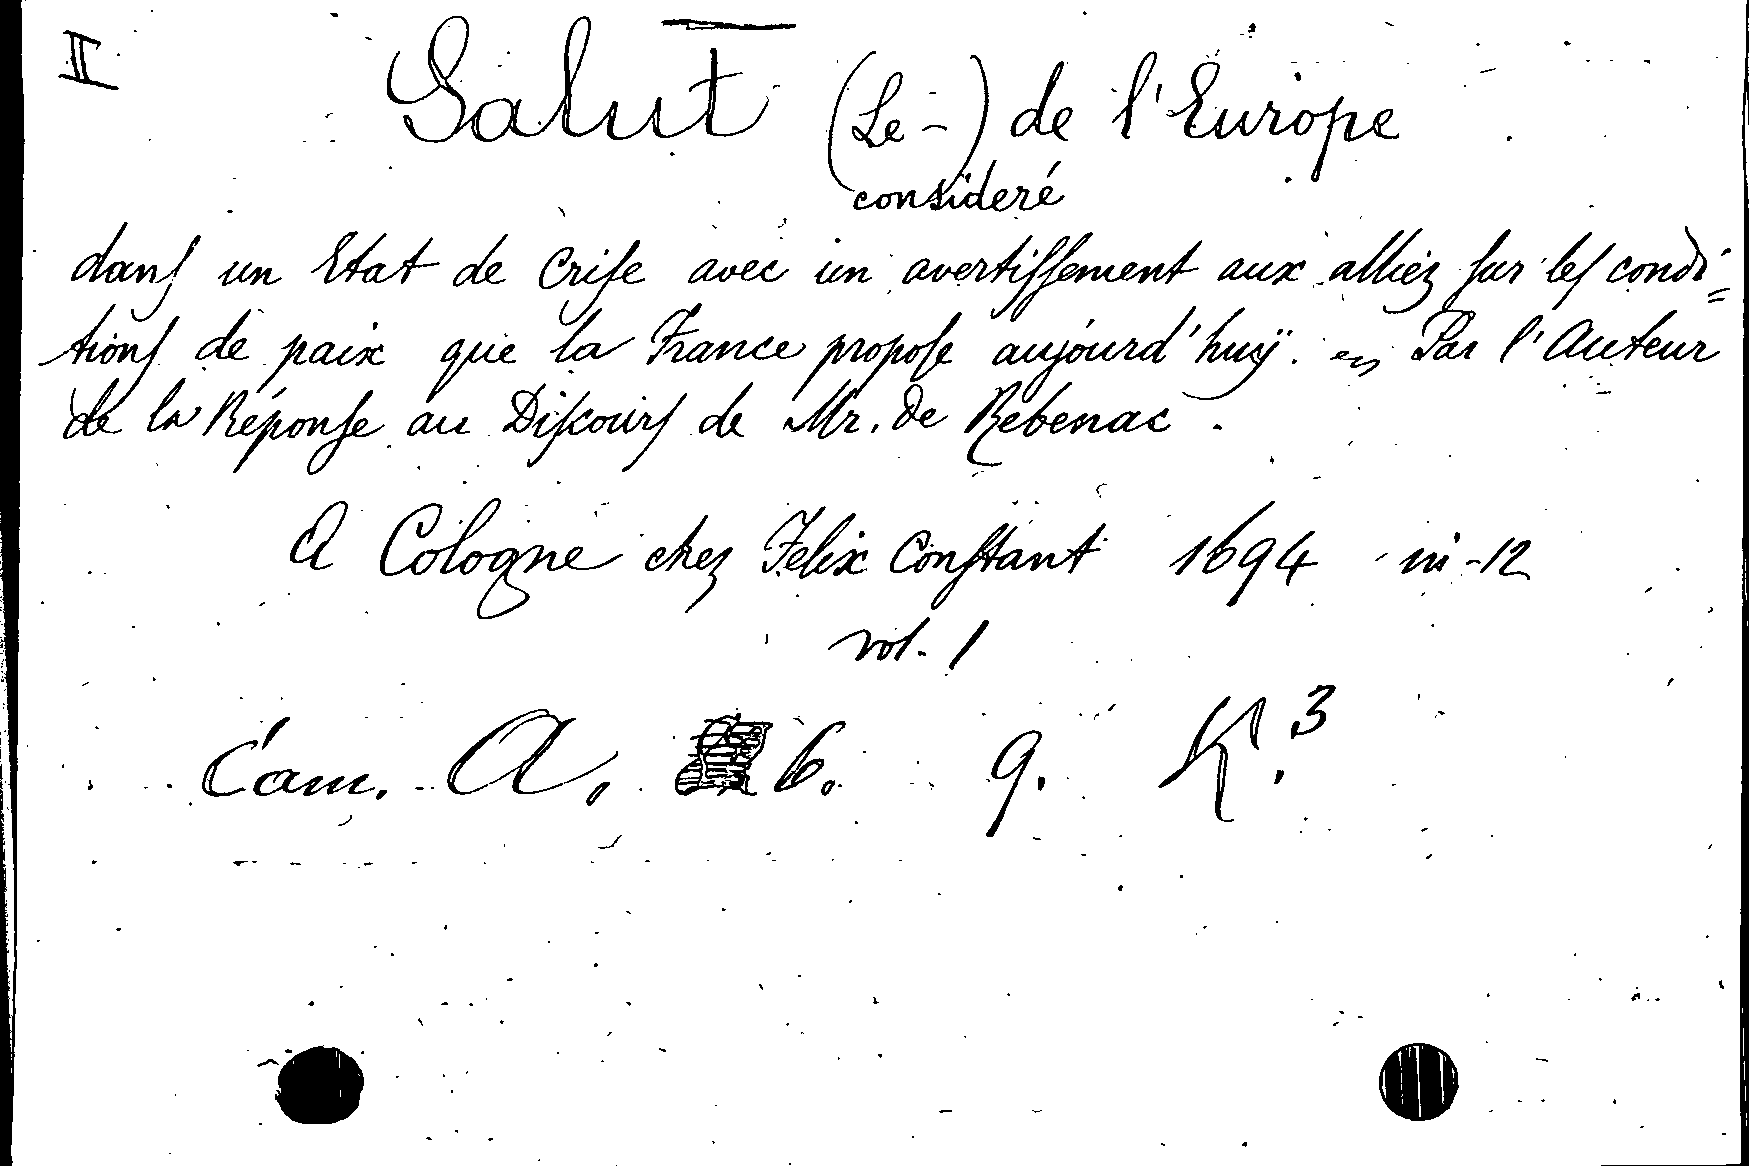 II
Salut (Le-) de l'Europe
consideré
danſ un Etat de Criſe avec un avertiſſement aux alliéz ſur leſ condi=
tionſ de paix que la France propoſe aujourd'huÿ. Par l'Auteur
de la Réponſe au Diſcourſ de Mr. de Rebenac.
A Cologne chez Felix Conſtant 1694 in-12
vol. 1
Cam. A. 6. 9. K.³